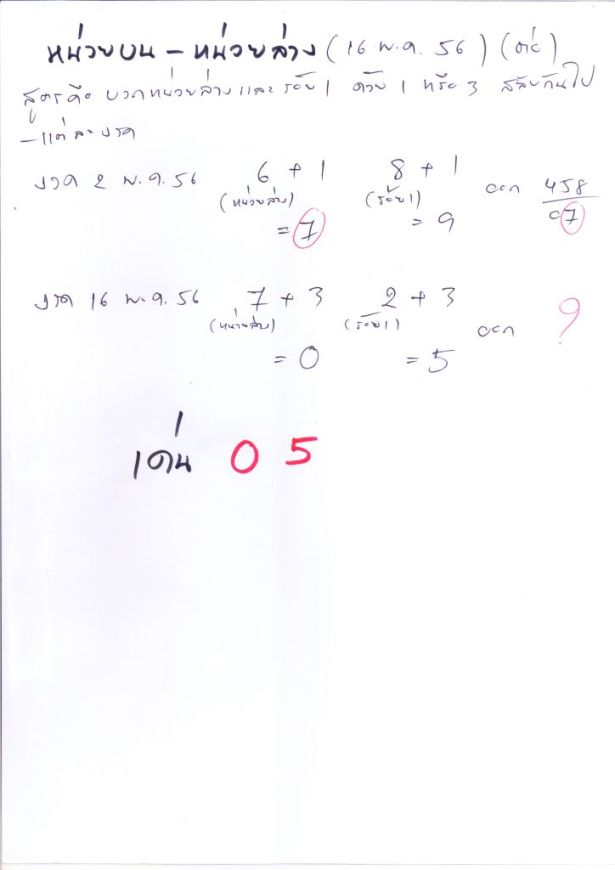 หน่วยบน - หน่วยล่าง (16 พ.ค. 56) (ต่อ)
สูตรคือ บวกหน่วยล่างและร้อย 1 ด้วย 1 หรือ 3 สลับกันไป
- แต่ละงวด
งวด 2 พ.ค. 56 6 + 1 8 + 1 ออก 458
(หน่วยล่าง) (ร้อย 1) 07
= 7 = 9
งวด 16 พ.ค. 56 7 + 3 2 + 3 ออก ?
(หน่วยล่าง) (ร้อย 1)
= 0 = 5
เด่น 0 5